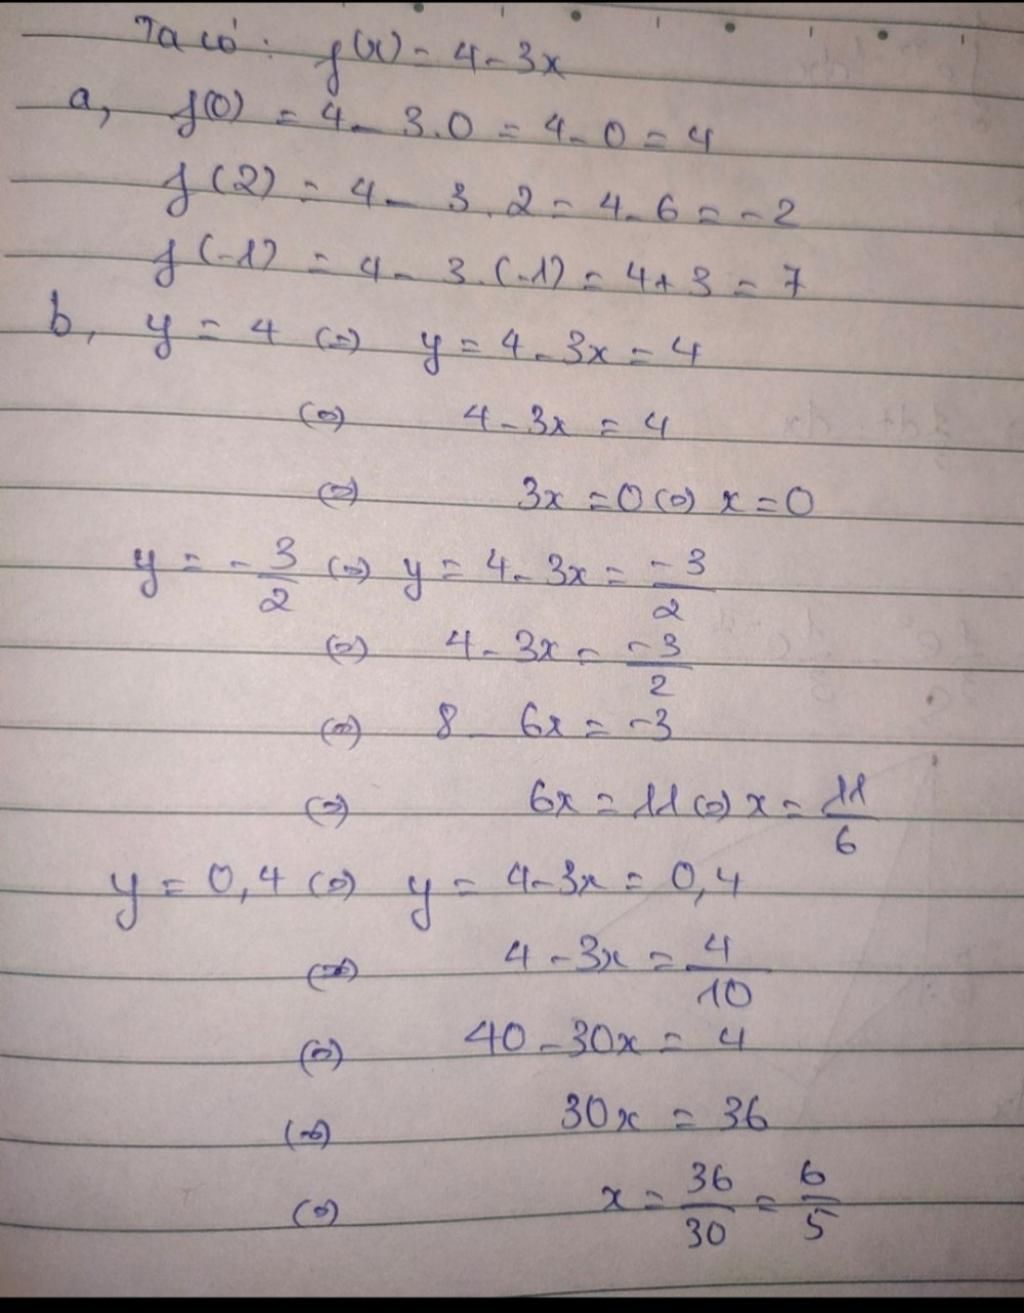 Ta có: f(x) = 4-3x
a, f(0) = 4-3.0 = 4-0 = 4
f(2) = 4-3.2 = 4-6 = -2
f(-1) = 4-3.(-1) = 4+3 = 7
b, y = 4 (=) y = 4-3x = 4
(=) 4-3x = 4
(=) 3x = 0 (=) x = 0
y = -3/2 (=) y = 4-3x = -3/2
(=) 4-3x = -3/2
(=) 8-6x = -3
(=) 6x = 11 (=) x = 11/6
y = 0,4 (=) y = 4-3x = 0,4
(=) 4-3x = 4/10
(=) 40-30x = 4
(=) 30x = 36
(=) x = 36/30 = 6/5